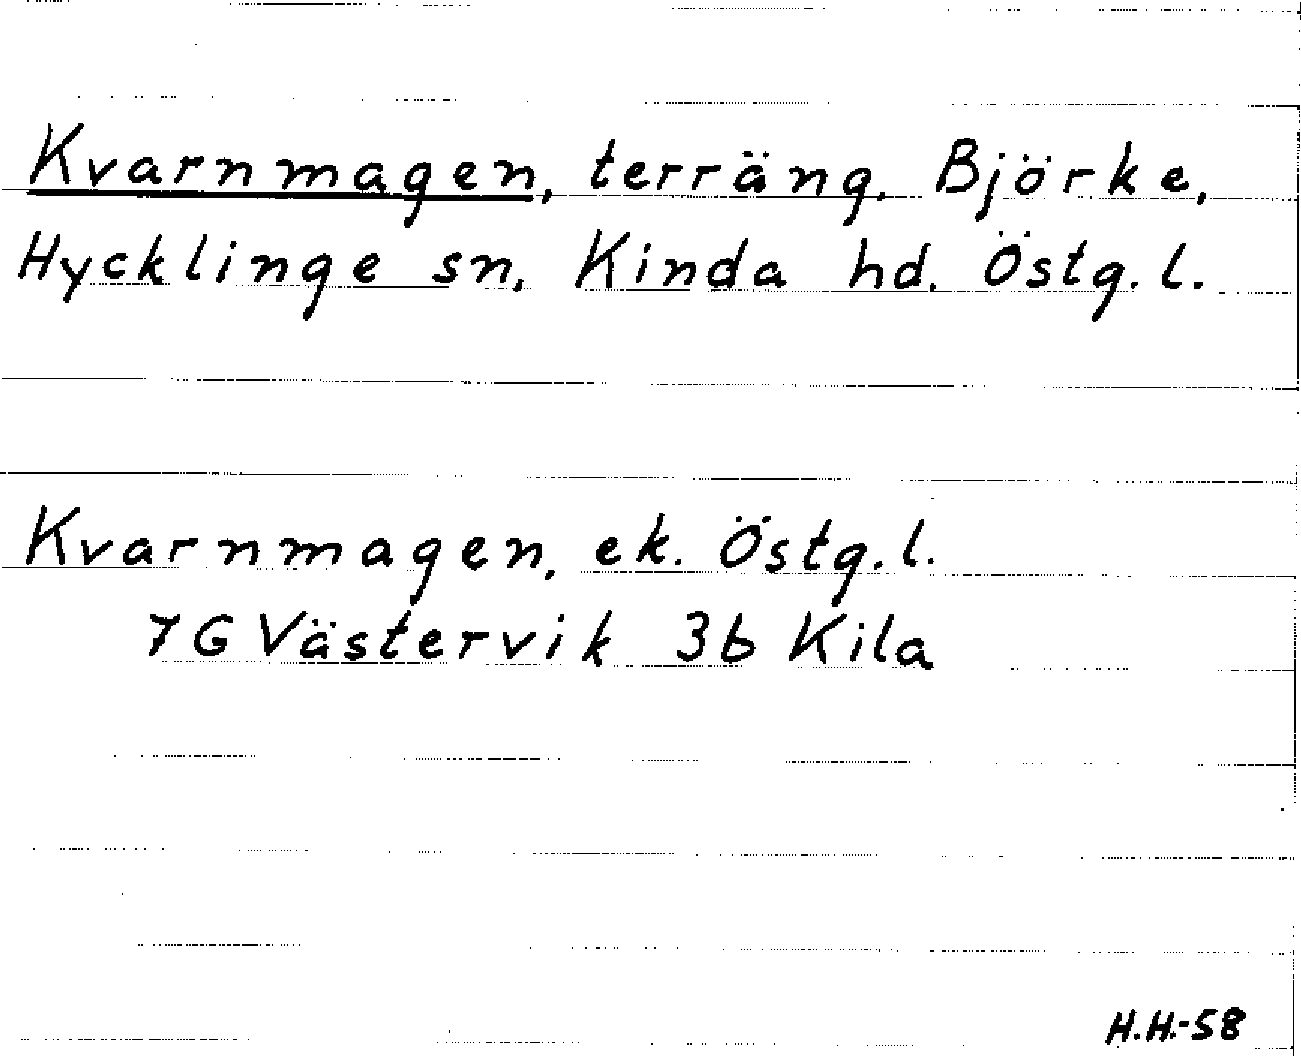 Kvarnmagen, terräng, Björke,
Hycklinge sn, Kinda hd. Östg.l.
Kvarnmagen, ek. Östg.l.
7G Västervik 3b Kila
H.H.-58